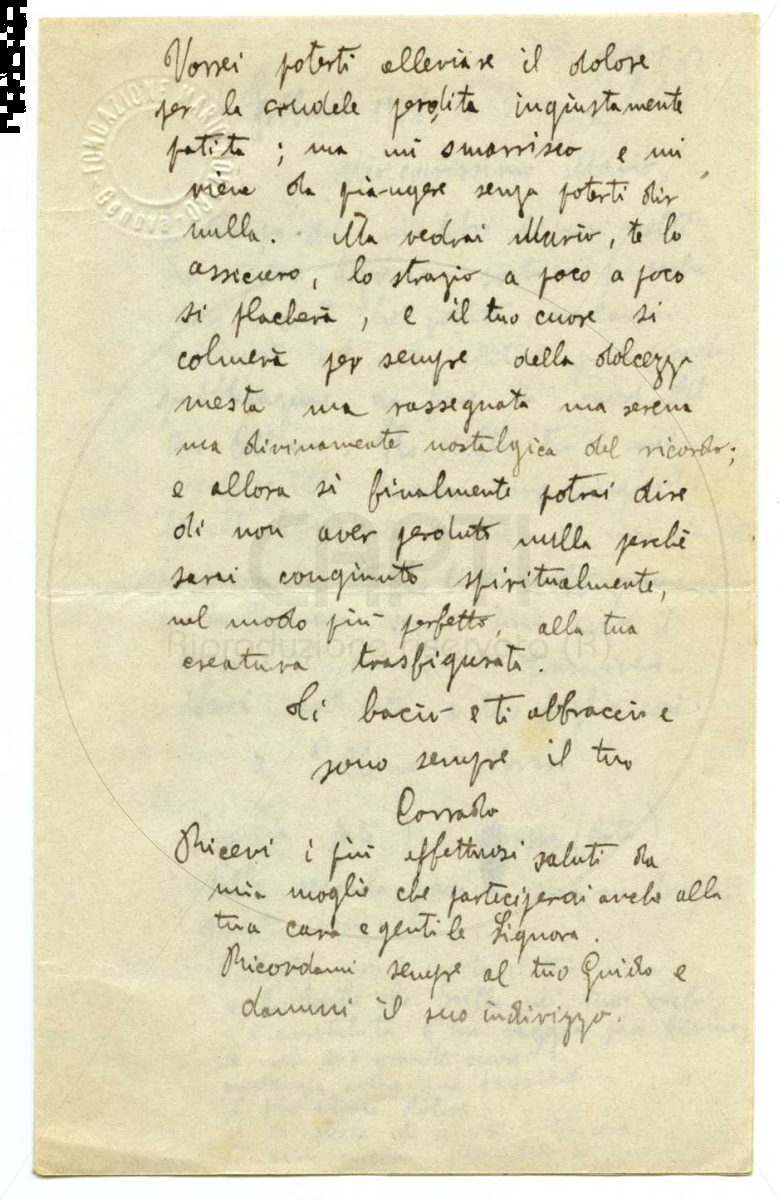 Vorrei poterti alleviare il dolore
per la crudele perdita ingiustamente
patita ; ma mi smarrisco e mi
viene da piangere senza poterti dir
nulla. Ma vedrai Mario, te lo
assicuro, lo strazio a poco a poco
si placherà, e il tuo cuore si
colmerà per sempre della dolcezza
mesta ma rassegnata ma serena
ma divinamente nostalgica del ricordo;
e allora sì finalmente potrai dire
di non aver perduto nulla perchè
sarai congiunto spiritualmente,
nel modo più perfetto, alla tua
creatura trasfigurata.
Ti bacio e ti abbraccio e
sono sempre il tuo
Corrado
Ricevi i più affettuosi saluti da
mia moglie che parteciperai anche alla
tua cara e gentile Signora.
Ricordami sempre al tuo Guido e
dammi il suo indirizzo.
FONDAZIONE
Genova